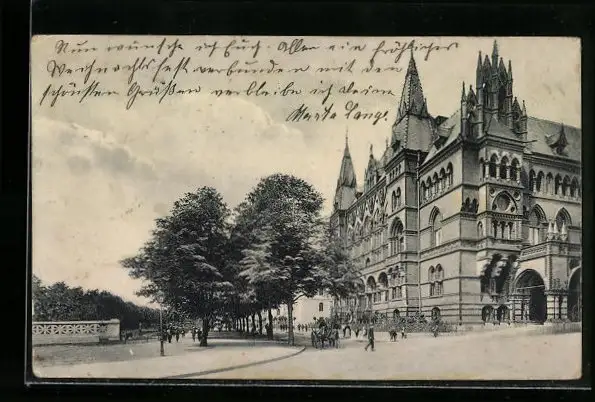 Nun wünsche ich Euch Allen ein fröhliches
Weihnachtsfest verbunden mit den
schönsten Grüßen verbleibe ich Deine
Marta Lange.